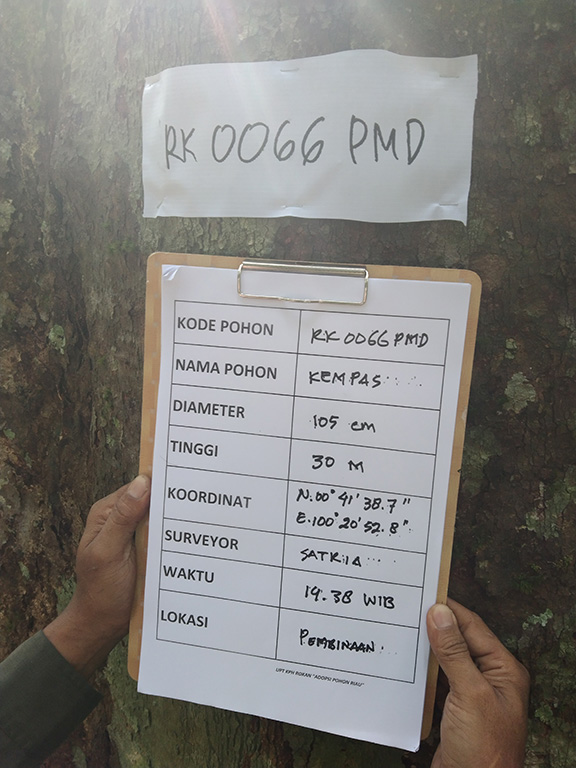 RK 0066 PMD
KODE POHON RK 0066 PMD
NAMA POHON KEMPAS
DIAMETER 105 cm
TINGGI 30 M
KOORDINAT N.00° 41' 38.7"
E.100° 20' 52.8"
SURVEYOR SATRIA
WAKTU 19.38 WIB
LOKASI PEMBINAAN
UPT KPH ROKAN "ADOPSI POHON RIAU"